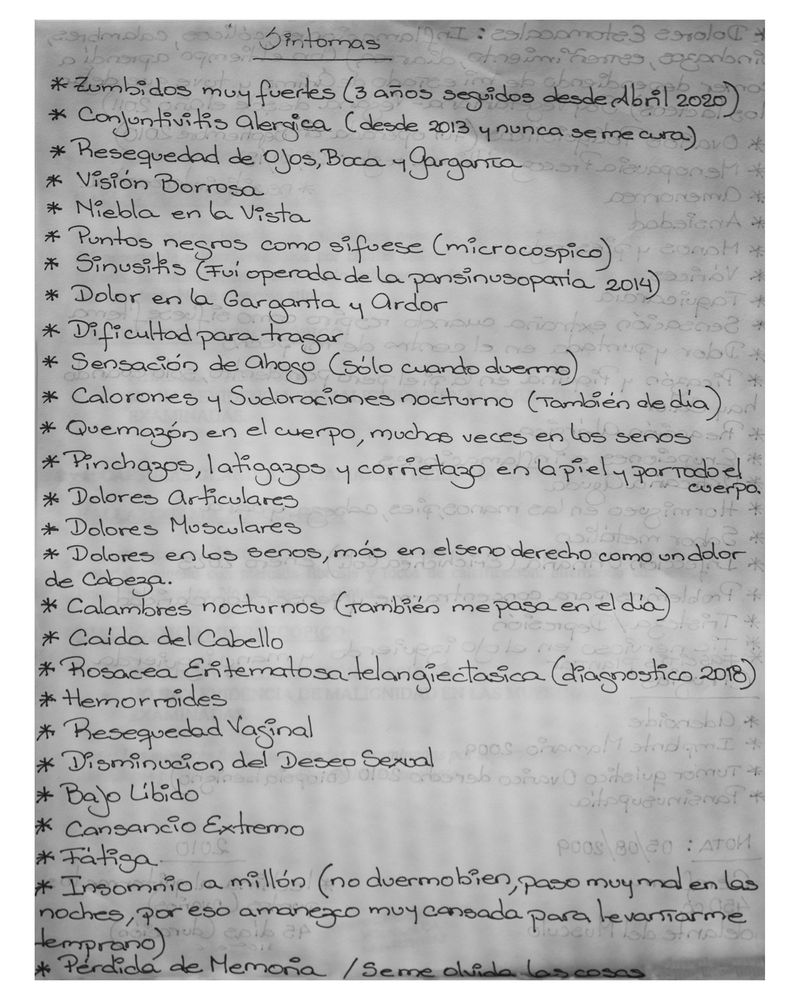 Síntomas
* Zumbidos muy fuertes (3 años seguidos desde Abril 2020)
* Conjuntivitis Alergica (desde 2013 y nunca se me cura)
* Resequedad de Ojos, Boca y Garganta
* Visión Borrosa
* Niebla en la Vista
* Puntos negros como si fuese (microcospico)
* Sinusitis (Fuí operada de la pansinusopatía 2014)
* Dolor en la Garganta y Ardor
* Dificultad para tragar
* Sensación de Ahogo (sólo cuando duermo)
* Calorones y Sudoraciones nocturno (También de día)
* Quemazón en el cuerpo, muchas veces en los senos
* Pinchazos, latigazos y corrietazo en la piel y por todo el
cuerpo.
* Dolores Articulares
* Dolores Musculares
* Dolores en los senos, más en el seno derecho como un dolor
de Cabeza.
* Calambres nocturnos (También me pasa en el día)
* Caída del Cabello
* Rosacea Eritematosa-telangiectasica (diagnostico 2018)
* Hemorroides
* Resequedad Vaginal
* Disminucion del Deseo Sexual
* Bajo Líbido
* Cansancio Extremo
* Fátiga.
* Insomnio a millón (no duermo bien, paso muy mal en las
noches, por eso amanezco muy cansada para levantarme
temprano)
* Pérdida de Memoria / Se me olvida las cosas